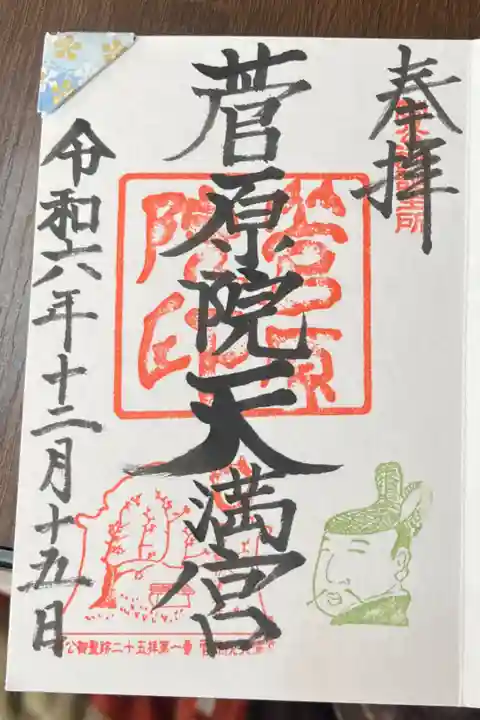 奉拝
菅原院天満宮
令和六年十二月十五日
菅原院印
公御聖跡二十五拝第一番